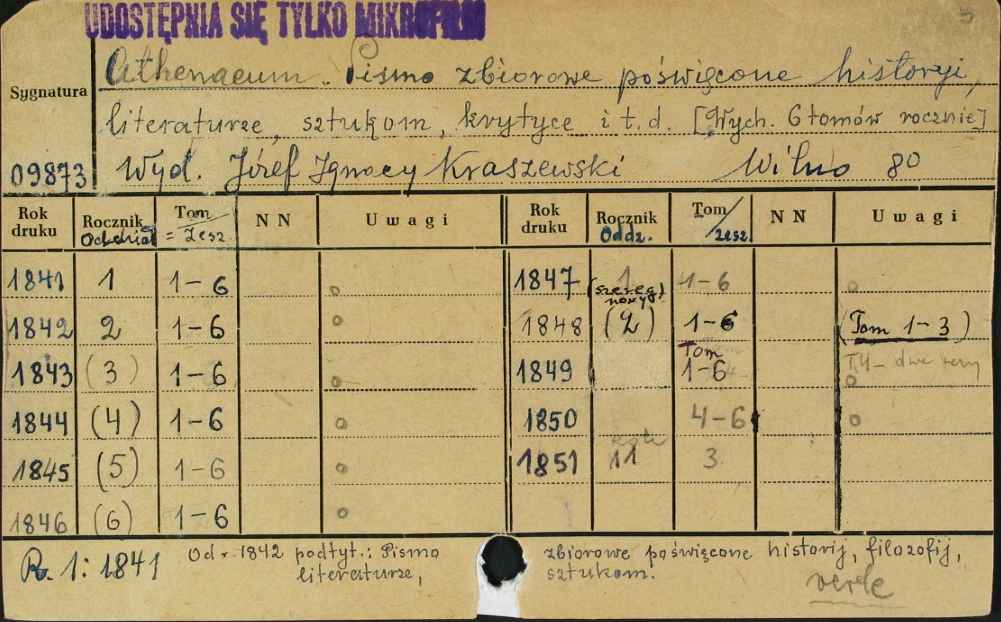 UDOSTĘPNIA SIĘ TYLKO MIKROFILM
Sygnatura
Athenaeum. Pismo zbiorowe poświęcone historyi,
literaturze, sztukom, krytyce i t.d. [Wych. 6 tomów rocznie]
09873 Wyd. Józef Ignacy Kraszewski Wilno 80
Rok druku Rocznik Oddział Tom = Zesz NN Uwagi Rok druku Rocznik Oddz. Tom / zesz NN Uwagi
1841 1 1-6 o 1847 1 (szereg nowy) 1-6 o
1842 2 1-6 o 1848 (2) 1-6 (Tom 1-3)
1843 (3) 1-6 o 1849 Tom 1-6 T.4- dwa razy o
1844 (4) 1-6 o 1850 4-6 o
1845 (5) 1-6 o 1851 11 3
1846 (6) 1-6 o
R. 1: 1841 Od r. 1842 podtyt.: Pismo zbiorowe poświęcone historij, filozofij,
literaturze, sztukom.
verte